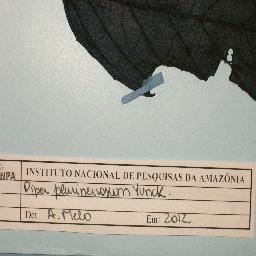 INPA
INSTITUTO NACIONAL DE PESQUISAS DA AMAZÔNIA
Piper plurinervosum Yunck.
Det. A. Melo Em: 2012